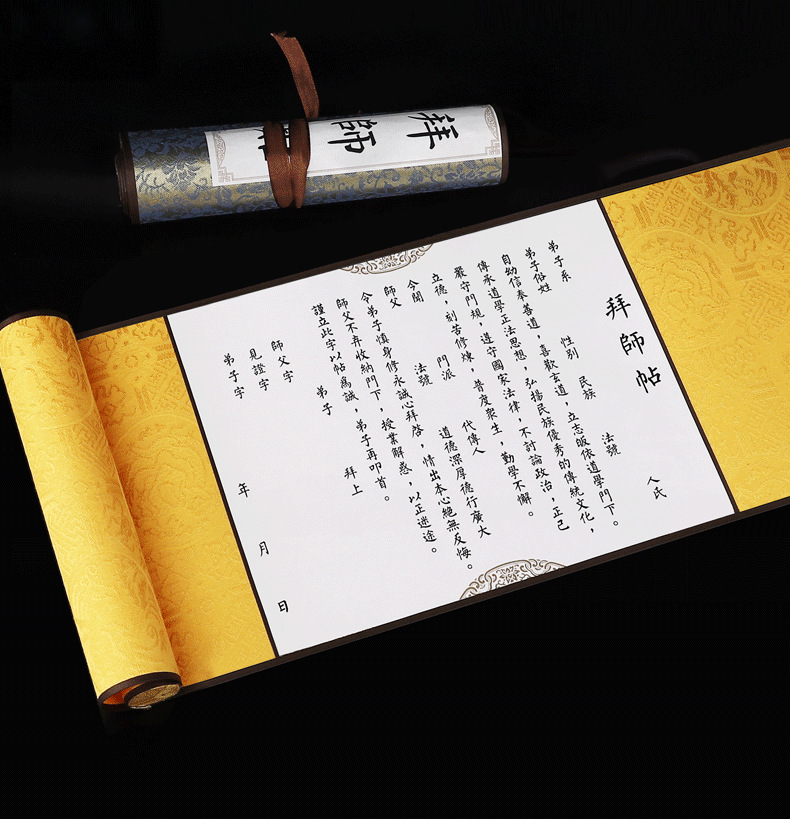 拜師
拜師帖
弟子系 人氏
弟子俗姓 性别 民族 法號
自幼信奉善道，喜歡玄道，立志皈依道學門下。
傳承道學正法思想，弘揚民族優秀的傳統文化，
嚴守門規，遵守國家法律，不討論政治，正己
立德，刻苦修煉，普度衆生，勤學不懈。
今聞 門派 代傳人
師父 法號 道德深厚德行廣大
令弟子慎身修永誠心拜啓，情出本心絶無反悔。
師父不弃收納門下，授業解惑，以正迷途。
謹立此字以帖爲誠，弟子再叩首。
弟子 拜上
師父字
見證字
弟子字
年 月 日